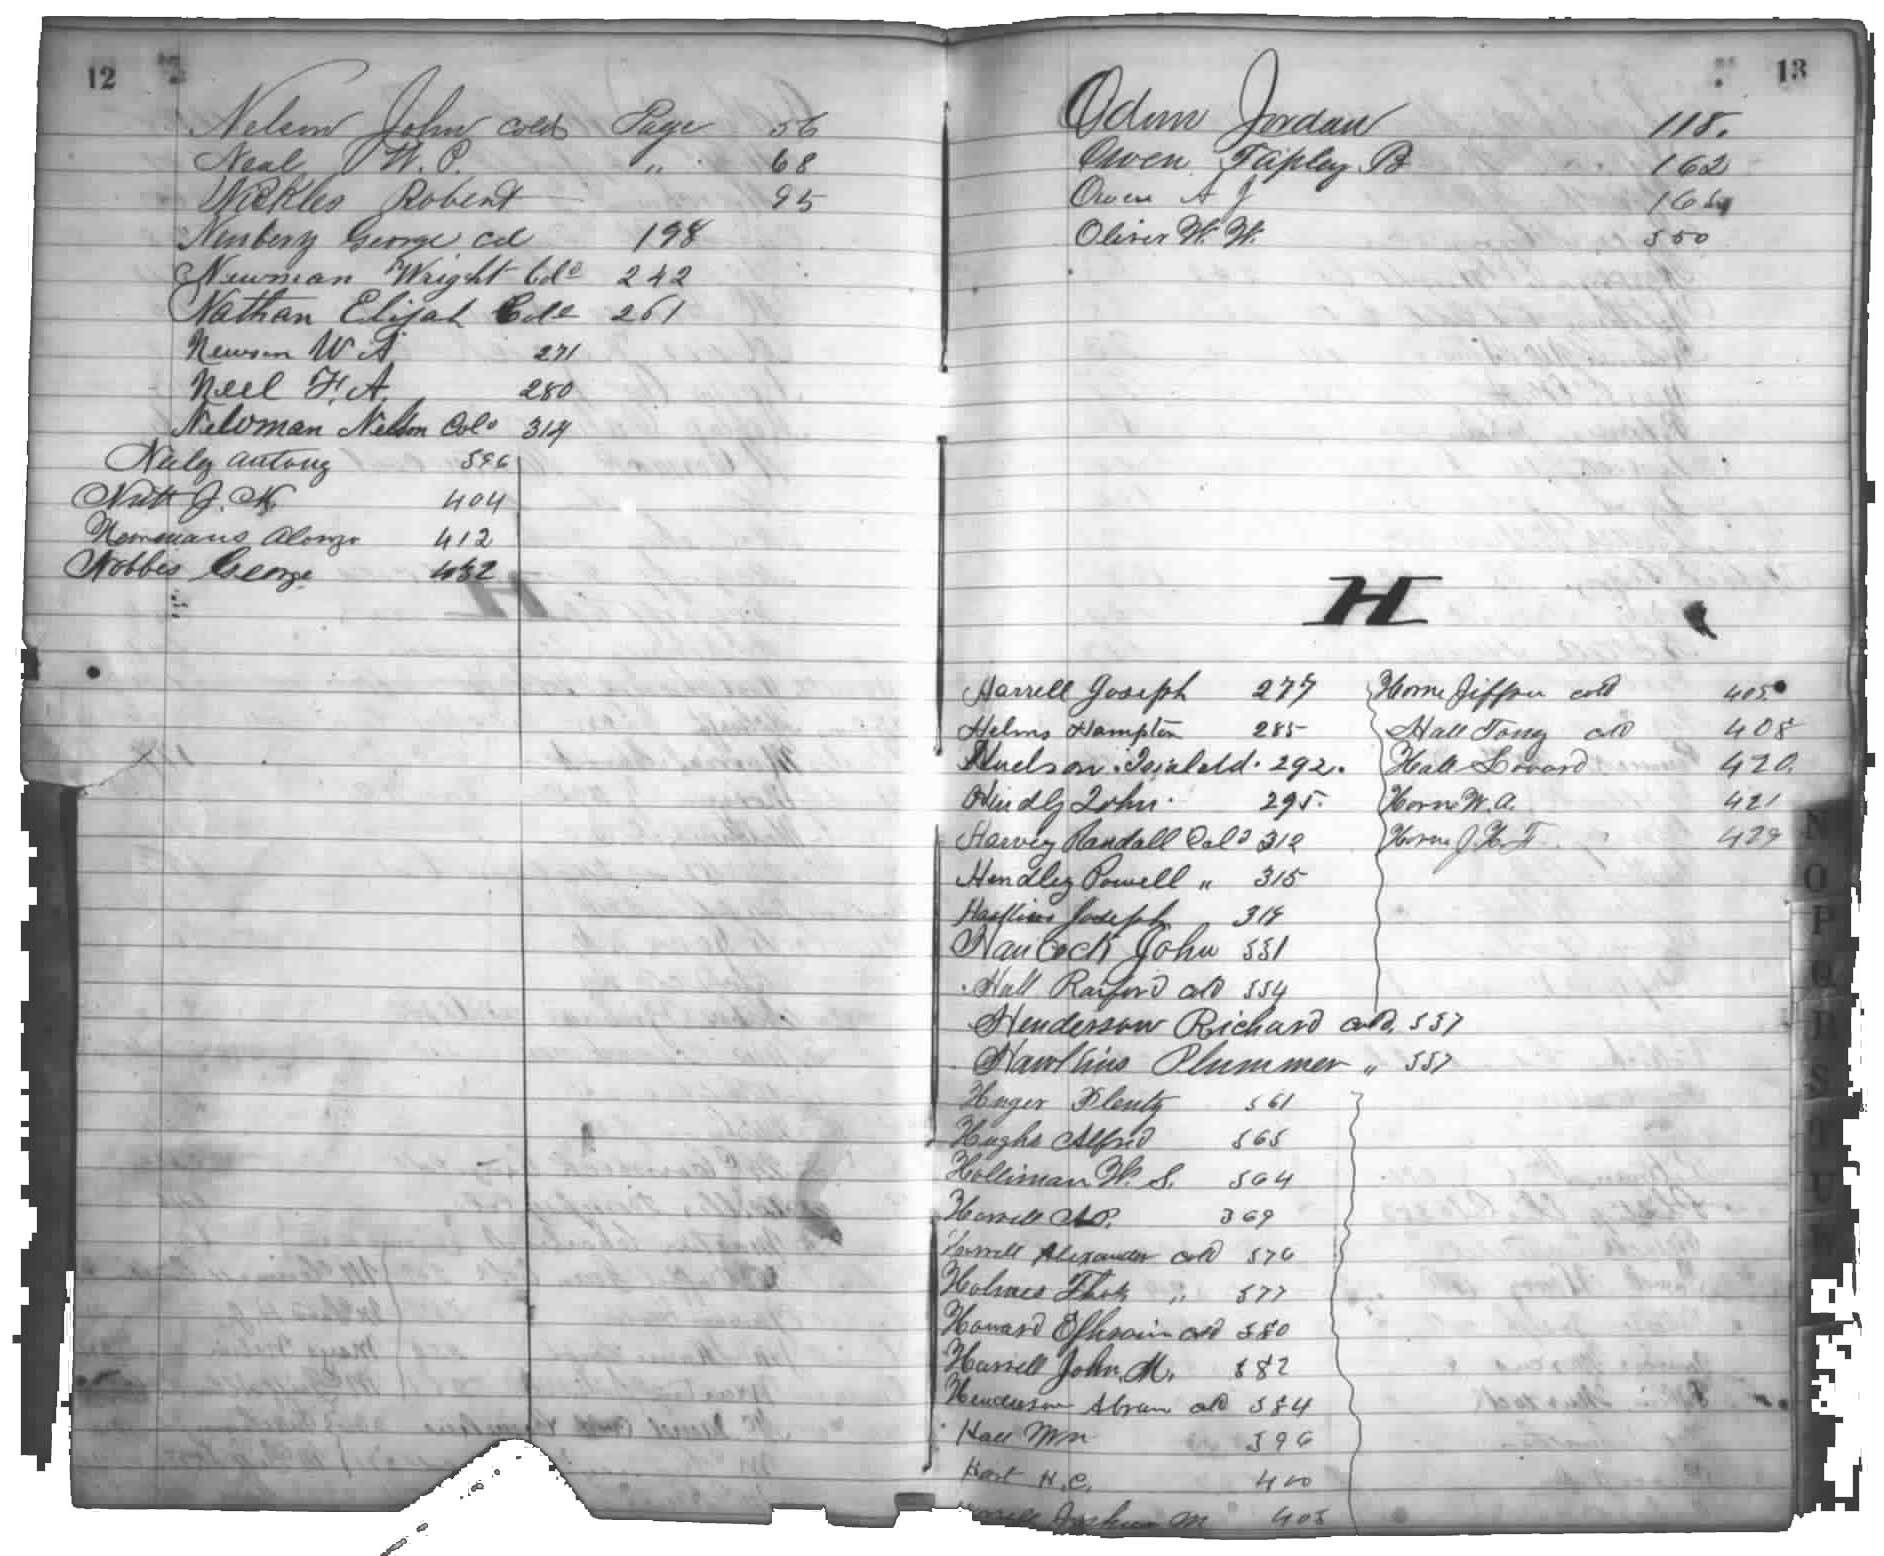 12
Nelson John cold Page 56
Neal W. P. " 68
Nickles Robert 95
Newbery George cd 198
Newman Wright Cold 242
Nathan Elijah Cold 261
Newsom W A 271
Neel F. A. 280
Newman Nelson Cold 314
Neeley antony 396
Nutt J. K. 404
Newmans Alonzo 412
Nobbes George 432
13
Odum Jordan 118.
Owen Tapley B 162
Owen A J
Oliver W. W. 350
H
Harrell Joseph 277
Helms Hampton 285
Hudson 292.
Hindly John 295.
Harvey Randall Cold 312
Hendley Powell " 315
Haskins Joseph 319
Hancock John 331
Hall Raiford cold 334
Henderson Richard cold. 337
Hawkins Plummer " 337
Huger Plenty 361
Hughs Alfred 363
Holliman W. S. 364
Harrell A. P. 369
Harrell Alexander cold 376
Holmes Thos " 377
Howard Ephraim cold 380
Harrell John. M. 382
Henderson Abram cold 384
Hall Wm 396
Hart H. C. 400
Joshua M 403
Horne Jiffson cold 405
Hall Tony cold 408
Hall Lovard 420.
Horne W. A. 421
Horne J. H. F. 429
N
O
P
Q
R
S
T
U